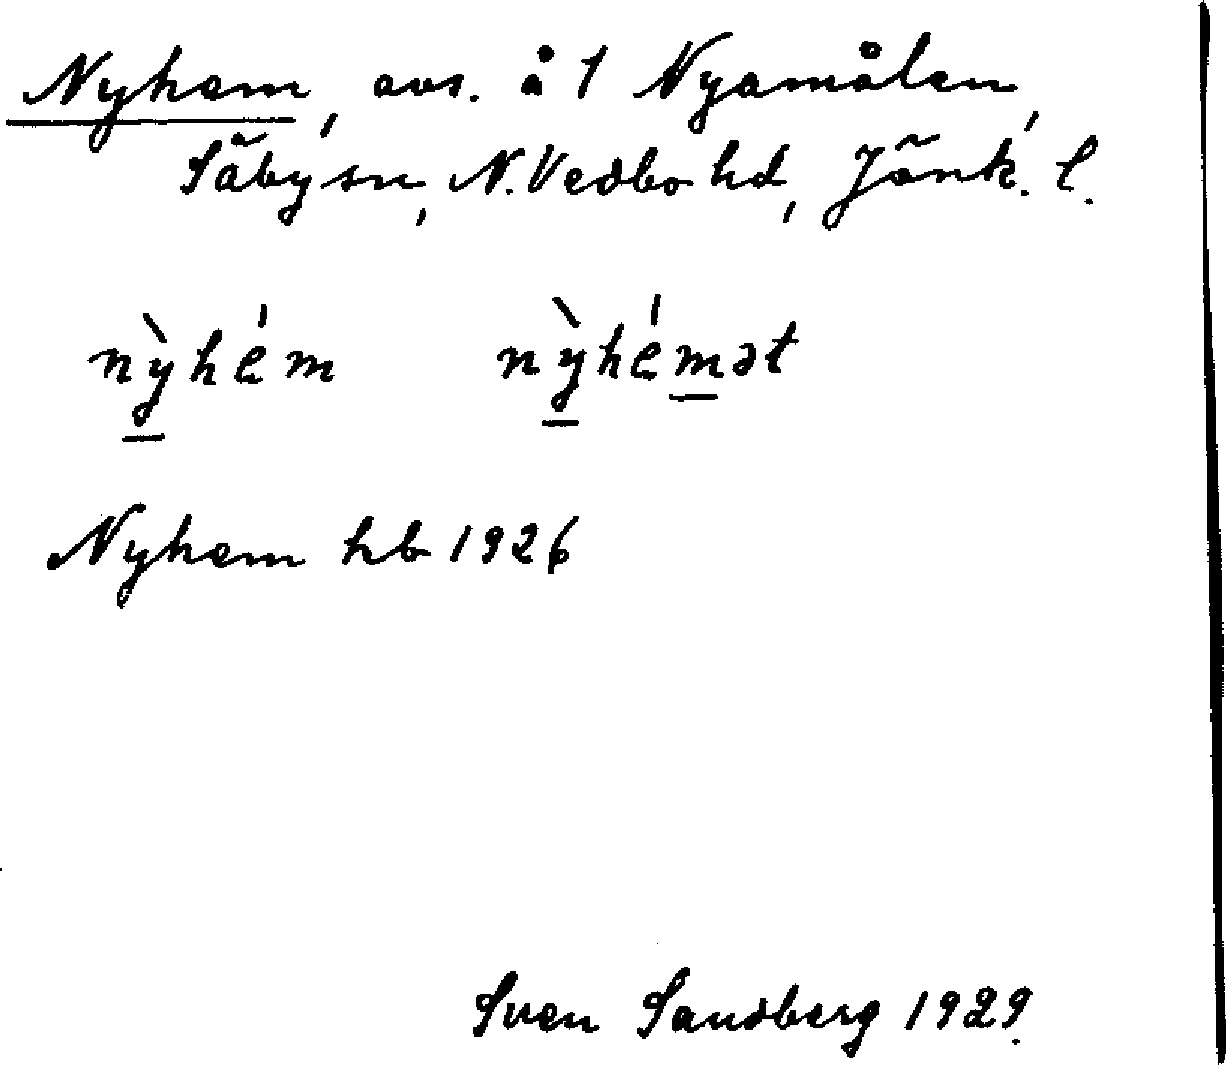 Nyhem, avs. å 1 Nyamålen,
Säby sn, N. Vedbo hd, Jönk. l.
nỳhém nỳhémət
Nyhem hb 1926
Sven Sandberg 1929.